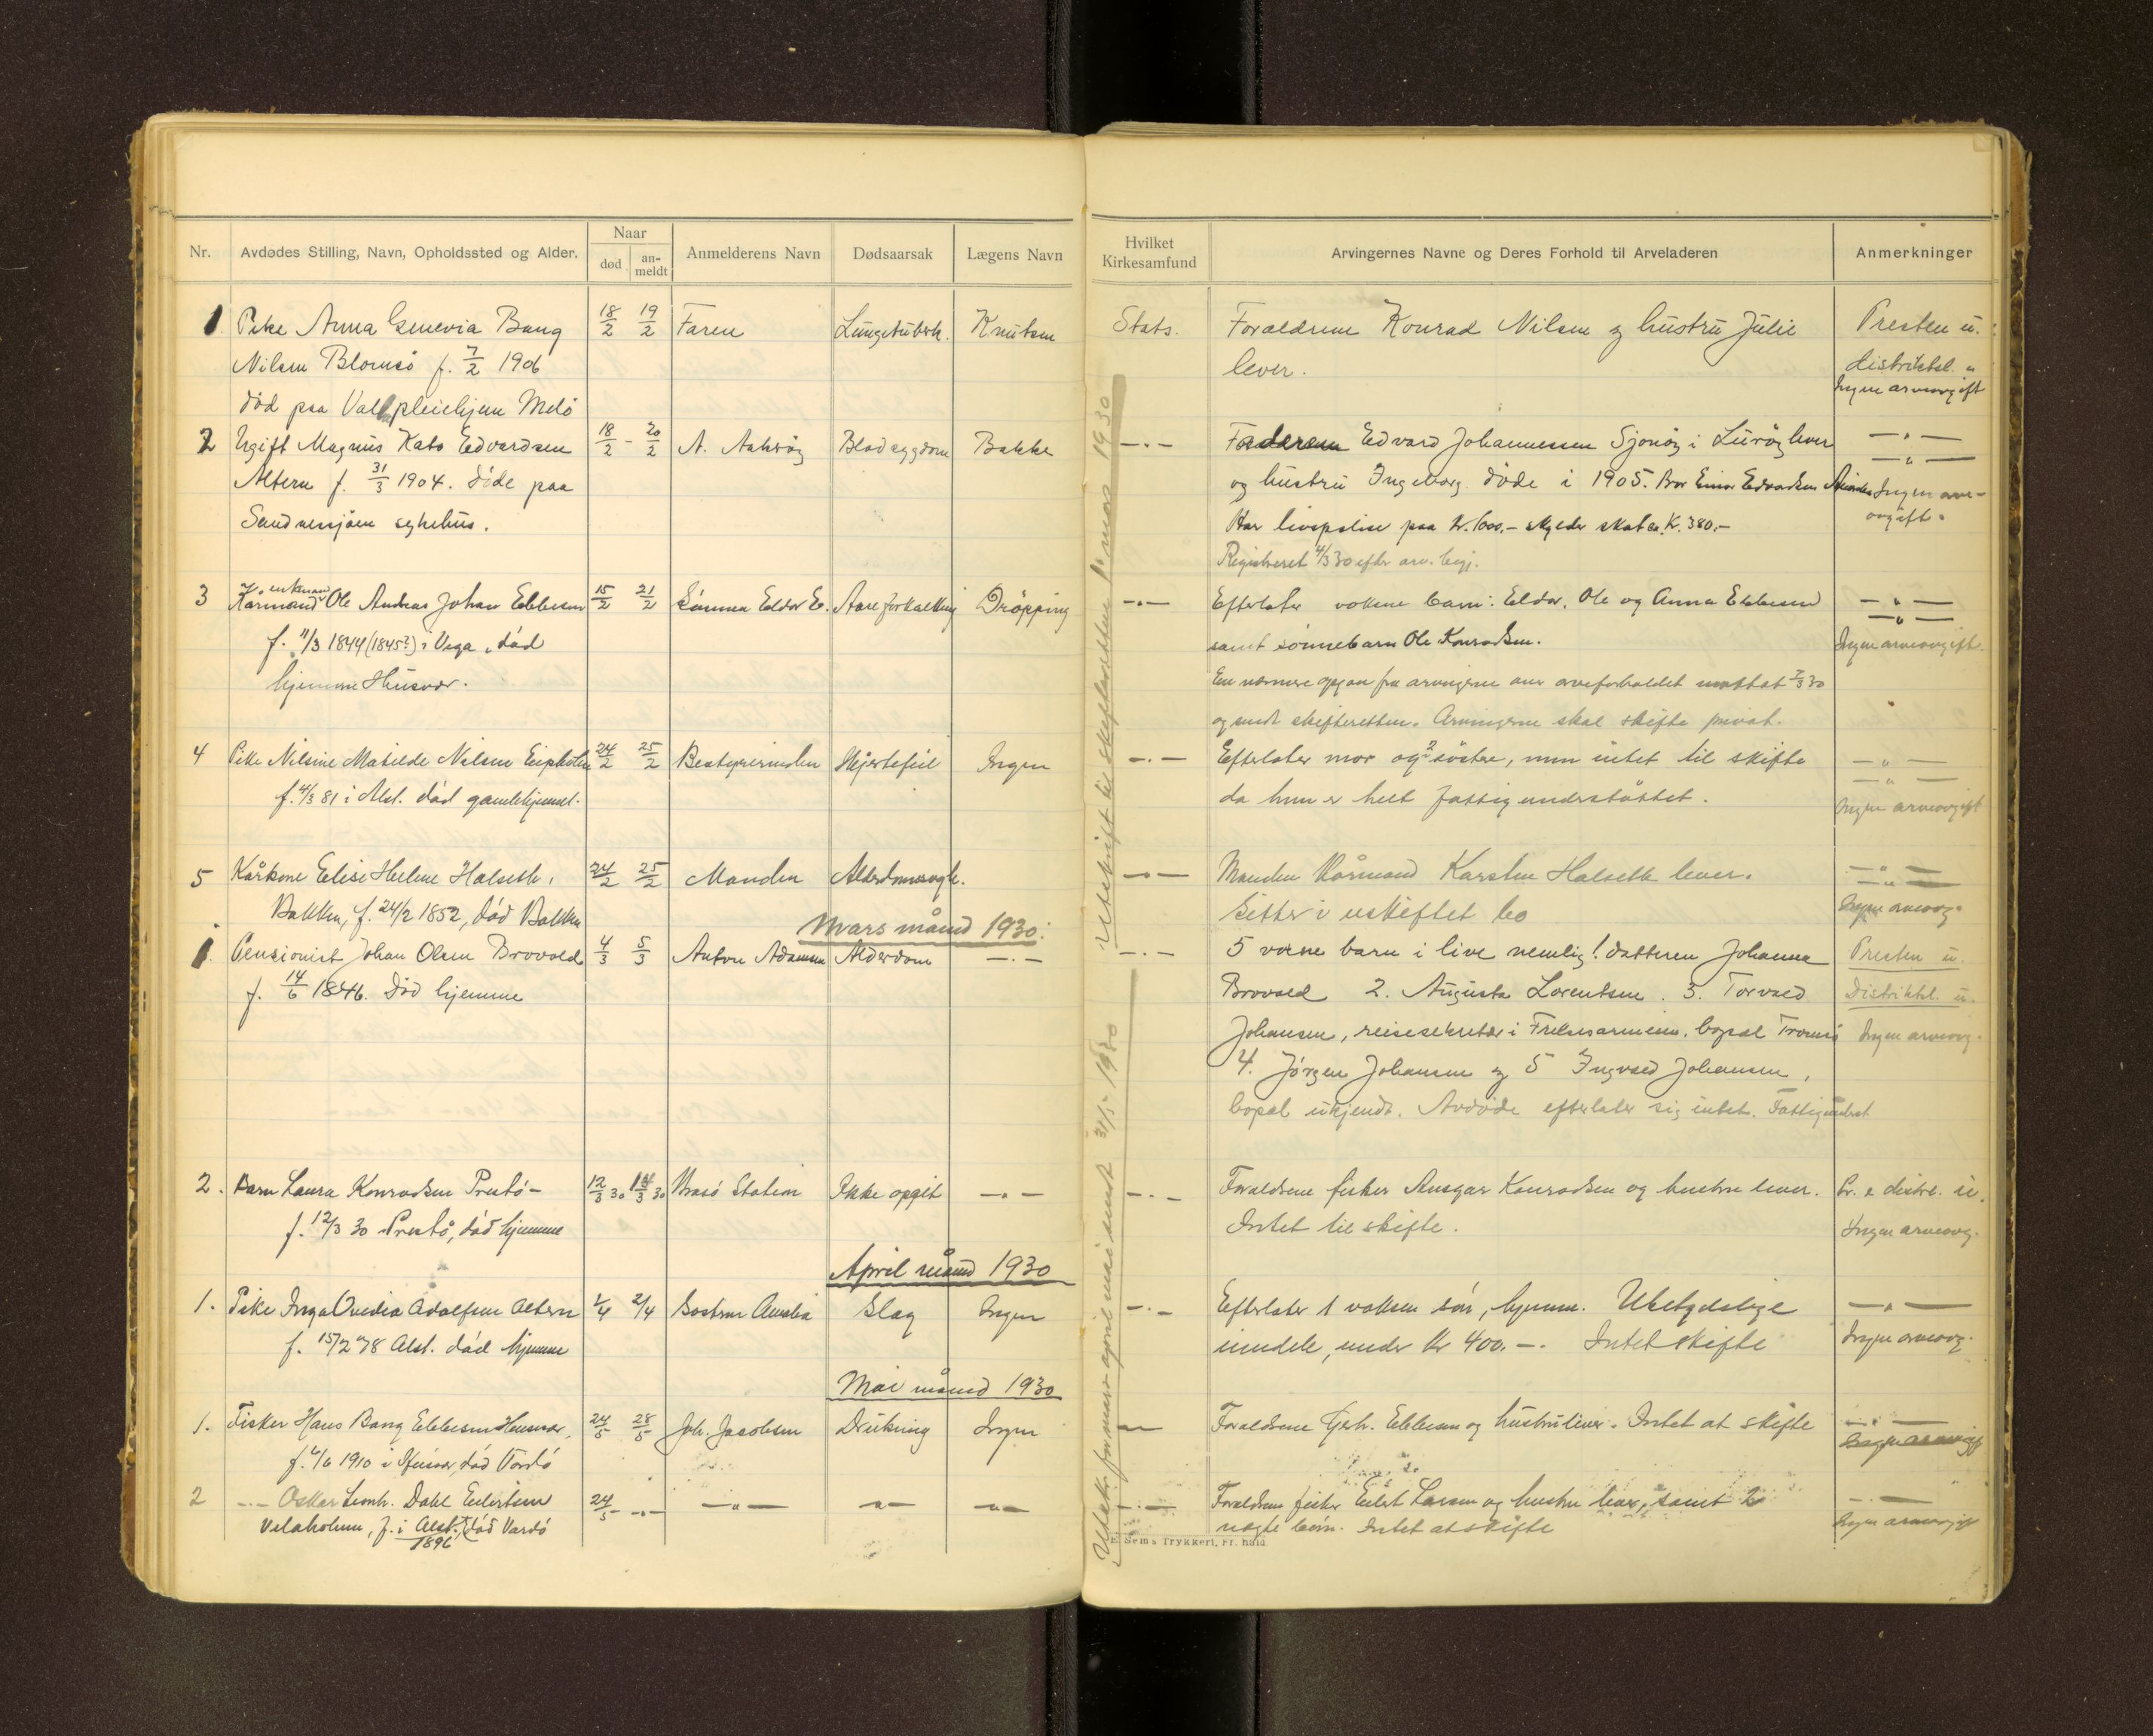 Nr.
Avdødes Stilling, Navn, Opholdssted og Alder.
Naar
død
an-
meldt
Anmelderens Navn
Dødsaarsak
Lægens Navn
Hvilket
Kirkesamfund
Arvingernes Navne og Deres Forhold til Arveladeren
Anmerkninger
1 Pike Anna Genevia Bang 18/2 19/2 Faren Lungetuberk. Knutsen Stats. Forældrene Konrad Nilsen og hustru Julie Presten u.
Nilsen Blomsö f. 7/2 1906 lever. distriktsl. u
Ingen arveavgift
död paa Val pleiehjem Melö
2 Ugift Magnus Kato Edvardsen 18/2 - 20/2 A. Aakvög Blodsygdom Bakke —·— Faderen Edvard Johannessen Sjonöy i Luröy lever —„—
—„—
Altern f. 31/3 1904. döde paa og hustru Ingeborg döde i 1905. Bror Einar Edvardsen Ingen arve-
avgift.
Sandnessjöen sykehus. Har livspolise paa Kr. 1000.- skylder skat ca. Kr. 380.-
Registreret 4/3 30 efter arv. begj.
3 Kårmand enkemand Ole Andreas Johan Ebbesen 15/2 21/2 Sønnen Eldor E. Aareforkalkning Dröpping —·— Efterlater voksne barn: Eldor, Ole og Anna Ebbesen —„—
—„—
f. 11/3 1844 (1845?) i Vega, död samt sönnebarn Ole Konradsen. Ingen arveavgift.
hjemme Husvær. En nærmere opgave fra arvingerne om arveforholdet mottat 7/3 30
og sendt skifteretten. Arvingerne skal skifte privat.
4 Pike Nilsine Matilde Nilsen 24/2 25/2 Bestyrerinden Hjertefeil Ingen —·— Efterlater mor og 2 söstre, men intet til skifte —„—
—„—
f. 4/3 81 i Alst. död gamlehjemmet. da hun er helt fattigunderstöttet. Ingen arveavgift
5 Kårkone Elise Helene Halseth, 24/2 25/2 Manden Alderdomssvagh. —·— Manden Kårmand Karsten Halseth lever. —„—
—„—
Bakken, f. 24/2 1852, död Bakken Sitter i uskiftet bo Ingen arveavg.
Mars månd 1930:
1. Pensionist Johan Olsen Brovold 4/3 5/3 Anton Adamsen Alderdom —·— —·— 5 voxne barn i live nemlig 1. datteren Johanna Presten u.
f. 14/6 1846. Död hjemme Brovold 2. Augusta Lorentsen. 3. Torvald Distriktsl. u.
Johansen, reisesekretær i Frelsesarmeen, bopæl Tromsö Ingen arveavg.
4. Jörgen Johansen og 5 Ingvald Johansen,
bopæl ukjendt. Avdöde efterlater sig intet. Fattigunderst.
2. Barn Laura Konradsen Prestö- 12/3 30 14/3 30 Brasö Station Ikke opgit —·— —·— Forældrene fisker Ansgar Konradsen og hustru lever. Pr. & distrl. u.
f. 12/3 30 Prestö, död hjemme Intet til skifte. Ingen arveavg.
April månd 1930
1. Pike Inga Ovedia Adolfsen Altern 1/4 2/4 Söstrene Amalia Slag Ingen —·— Efterlater 1 voksen sön, hjemme. Ubetydelige —„—
f. 15/2 78 Alst. död hjemme eiendele, under Kr 400.-. Intet skifte Ingen arveavg.
Mai månd 1930
1. Fisker Hans Bang Ebbesen Husvær, 24/5 28/5 Joh. Jacobsen Drukning Ingen — Forældrene Gerh. Ebbesen og hustru lever. Intet at skifte —„—
f. 4/6 1910 i Husvær, död Vardö Ingen arveavgift
2 —·— Oskar Leonh. Dahl Eilertsen 24/5 —·— —„— —„— —„— —·— Forældrene fisker Eilert Larsen og hustru lever, samt —·—
Velaholmen, f. i Alst. 1896, död Vardö ægte barn. Intet at skifte Ingen arveavgift
Utskrift til skifteretten 1' mars 1930
Utskr. for mars april mai sendt 31/5-1930
E. Sems Trykkeri, Fr. hald